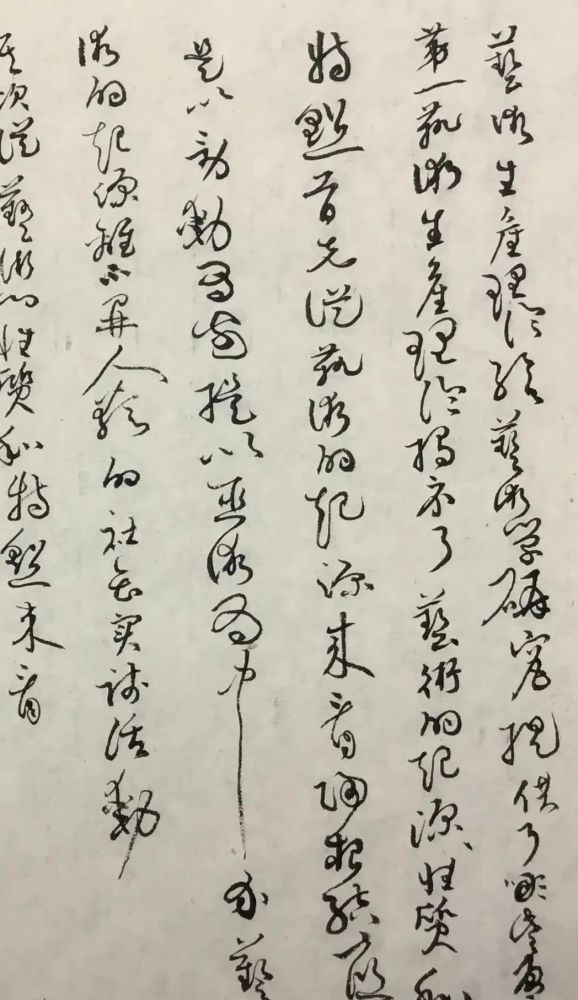 藝術生產理論給藝術學研究提供了哪些啟
第一藝術生產理論揭示了藝術的起源、性質和
特點首先從藝術的起源來看歸根結底
是以勞動為前提以巫術為中介藝
術的起源離不開人類的社會實踐活動
其次從藝術的性質和特點來看